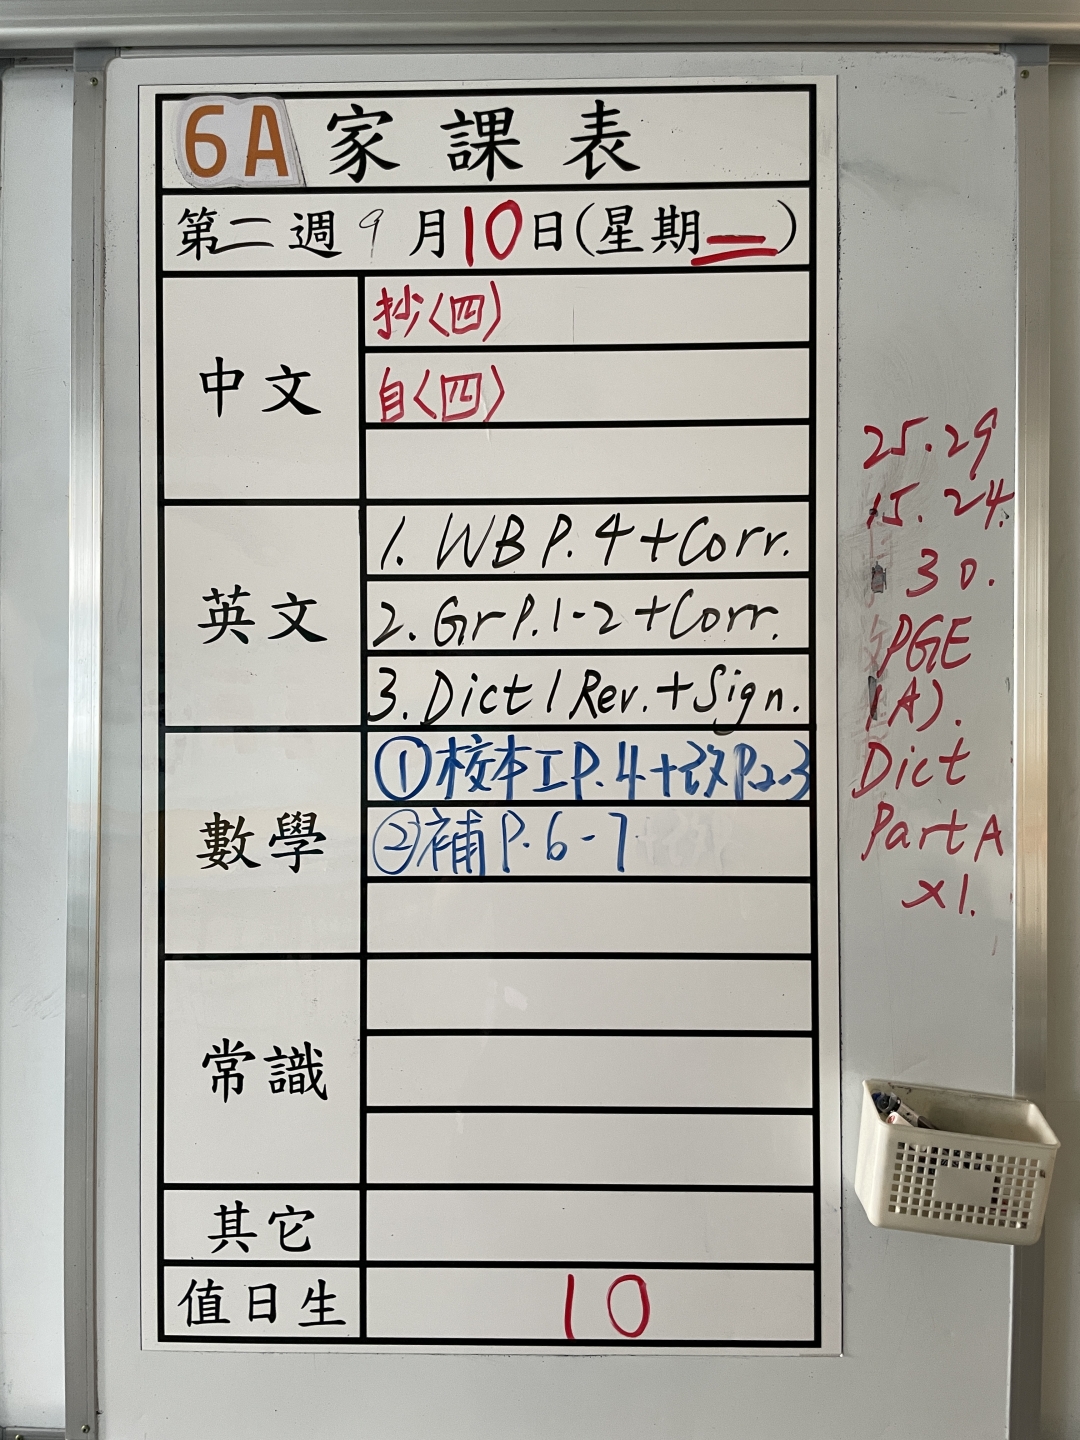 6A 家課表
第二週 9月10日(星期二)
中文
抄〈四〉
自〈四〉
英文
1. WB P.4 + Corr.
2. Gr P.1-2 + Corr.
3. Dict 1 Rev. + Sign.
數學
①校本工P.4+改P2.3
②補P.6-7
常識
其它
值日生
10
25.29
15.24.
30.
PGE
(A).
Dict
Part A
x1.